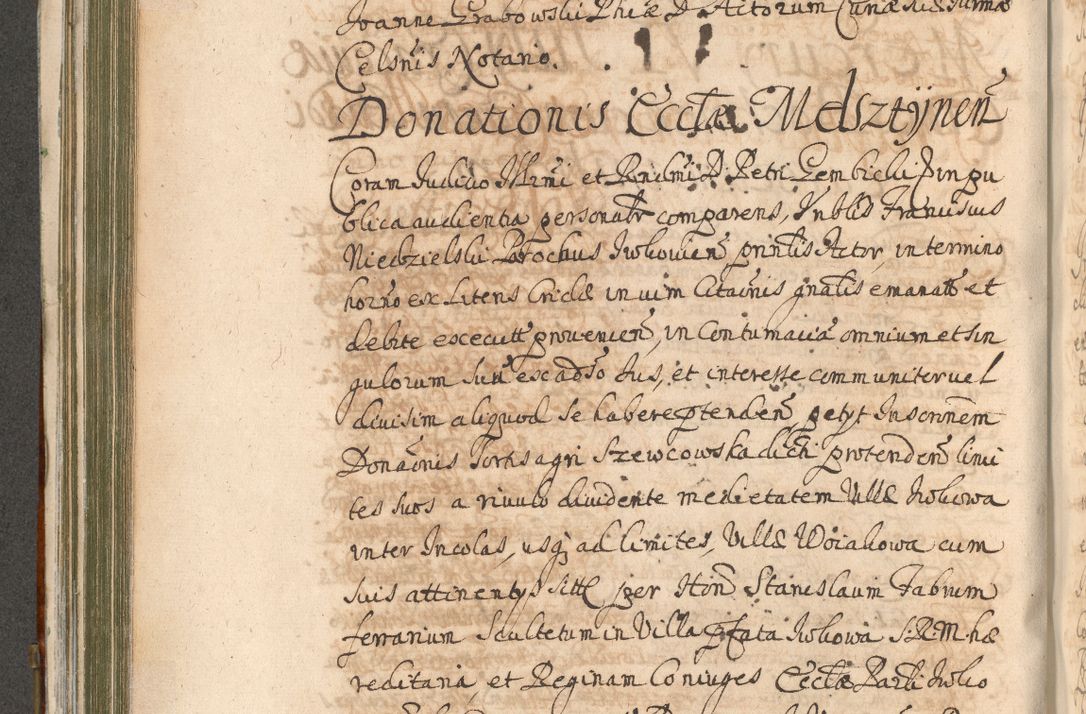 Joanne Grabowski Phiæ D. Actorum Curiæ
Celsnis Notario.
Donationis Eccłæ Melsztÿnen
Coram Judicio Illmi et Rndmi D Petri Gembicki in pu
blica audientia personalr comparens, Vnblis Franciscus
Niedzielski Parochus Iwkowien prinlis Actor, in termino
horno ex Literis Cridæ in vim Citaonis gnalis emanatt et
debite executt provenien, in Contumaciã omnium et sin
gulorum sui ex adso Jus, et interesse communiter vel
divisim aliquod se habere ptenden petyt Inscrinem
Donaonis Sortis agri Szewcowska dicti protenden limi
tes suos a rivulo dividente medietatem Villæ Iwkowa
inter Incolas, usq ad limites, Villæ Woiakowa cum
suis attinentys sitt per Hon Stanislaum Fabrum
ferrarium Scultetum in Villa pfata Iwkowa S. R. M. hæ
reditaria, et Reginam Coniuges Eccłæ Parli Iwko